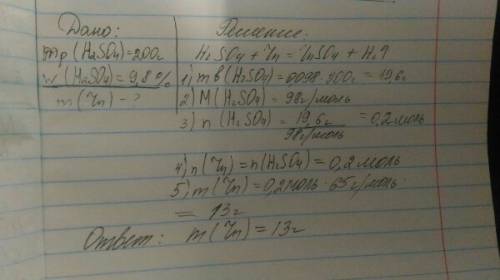 Дано:
mр(H₂SO₄)=200г
w(H₂SO₄)=9,8%
m(Zn)-?
Решение:
H₂SO₄+Zn=ZnSO₄+H₂↑
1) mв(H₂SO₄)=0,098·200г=19,6г
2) M(H₂SO₄)=98г/моль
3) n(H₂SO₄)=19,6г/98г/моль=0,2моль
4) n(Zn)=n(H₂SO₄)=0,2моль
5) m(Zn)=0,2моль·65г/моль
= 13г
Ответ: m(Zn)=13г